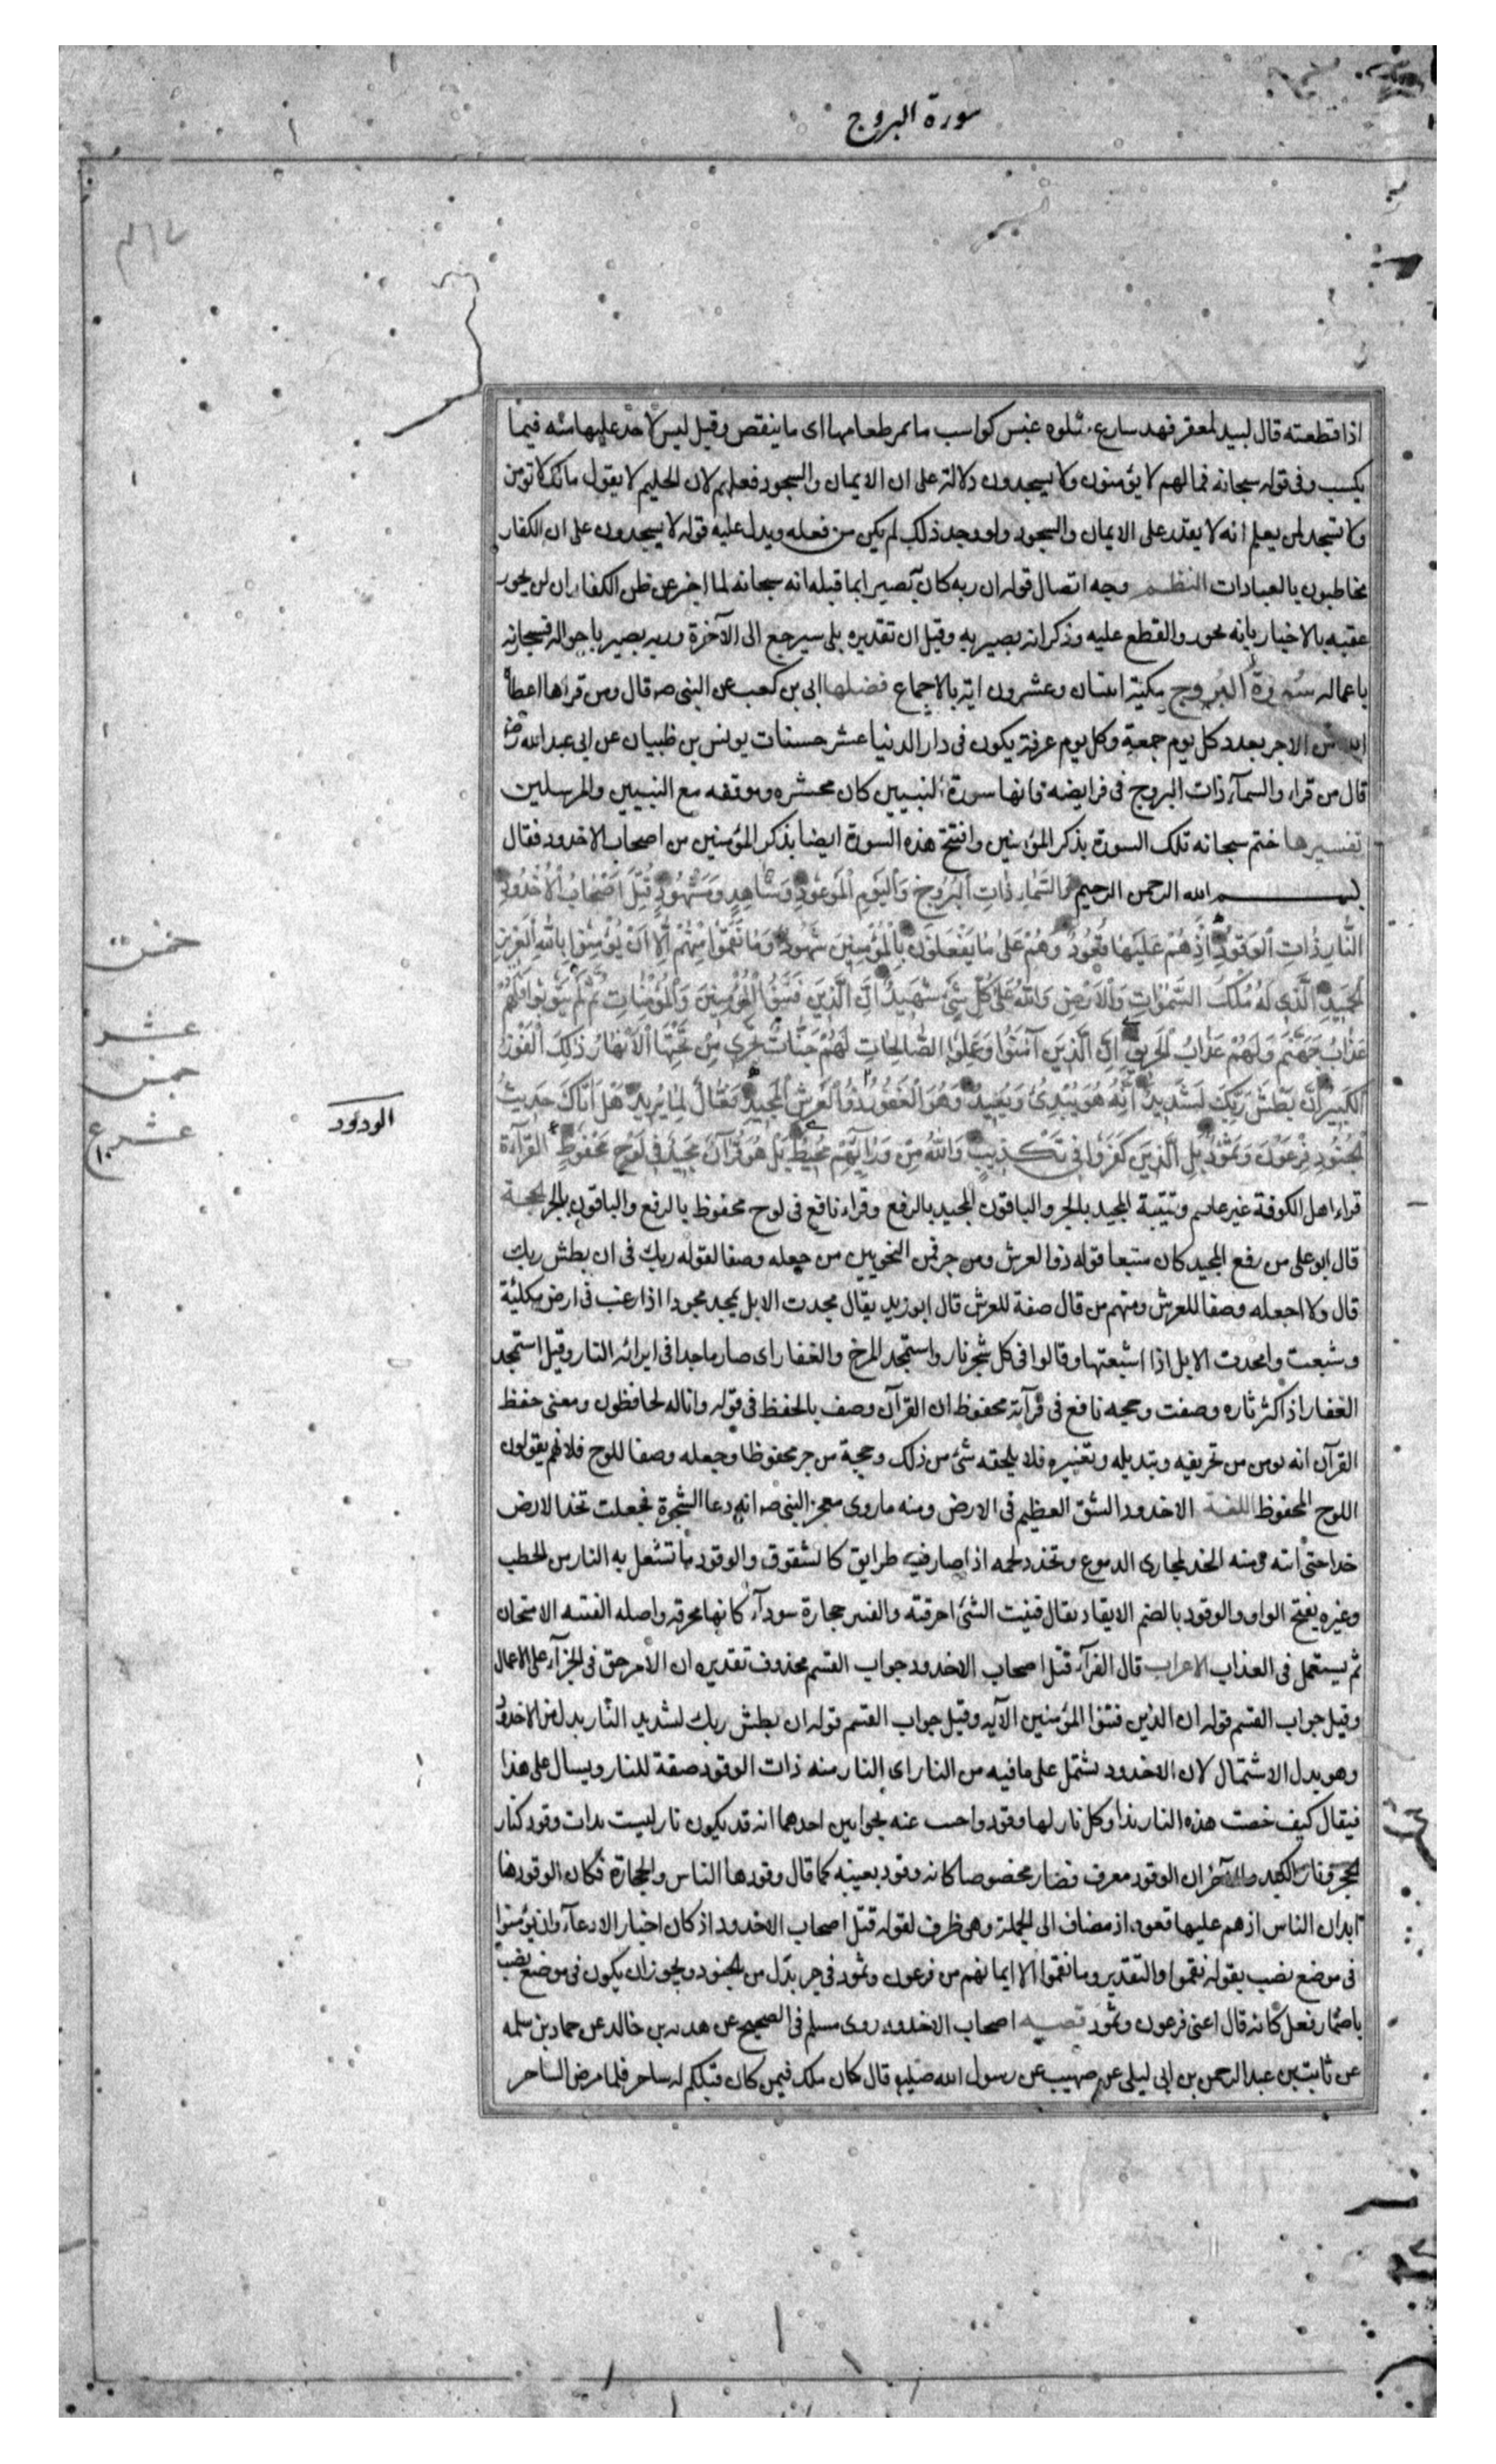 سورة البروج
اذا قطعته قال لبيد لمعفر فهد سارع شلوه غبس كواسب ما يمن طعامها اى ما ينقص وقيل ليس لاحد عليها منه فيما
يكسب وفى قوله سبحانه فما لهم لا يؤمنون ولا يسجدون دلالة على ان الايمان والسجود فعلهم لان الحليم لا يقول مالك لا تومن
ولا تسجد لمن يعلم انه لا يقدر على الايمان والسجود ولو وجد ذلك لم يكن من فعله ويدل عليه قوله لا يسجدون على ان الكفار
مخاطبون بالعبادات النظم وجه اتصال قوله ان ربه كان بصيرا بما قبله انه سبحانه لما اخبر عن ظن الكفار ان لن يحور
عقبه بالاخبار بانه يحور والقطع عليه وذكر انه بصير به وقيل ان تقديره بلى سيرجع الى الآخرة وربه بصير باحواله فيجازيه
باعماله سورة البروج مكية اثنتان وعشرون اية بالاجماع فضلها ابى بن كعب عن النبى صه قال ومن قراها اعطاه
الله من الاجر بعدد كل يوم جمعة وكل يوم عرفة يكون فى دار الدنيا عشر حسنات يونس بن ظبيان عن ابى عبد الله
قال من قراء والسمآء ذات البروج فى فرايضه فانها سورة النبيين كان محشره وموقفه مع النبيين والمرسلين
تفسيرها ختم سبحانه تلك السورة بذكر المؤمنين وافتتح هذه السورة ايضا بذكر المؤمنين من اصحاب الاخدود فقال
بسم الله الرحمن الرحيم وَالسَّمَاءِ ذَاتِ الْبُرُوجِ وَالْيَوْمِ الْمَوْعُودِ وَشَاهِدٍ وَمَشْهُودٍ قُتِلَ اَصْحَابُ الْاُخْدُودِ
النَّارِ ذَاتِ الْوَقُودِ اِذْ هُمْ عَلَيْهَا قُعُودٌ وَهُمْ عَلىٰ مَا يَفْعَلُونَ بِالْمُؤْمِنِينَ شُهُودٌ وَمَا نَقَمُوا مِنْهُمْ اِلَّا اَنْ يُؤْمِنُوا بِاللهِ الْعَزِيزِ
الْحَمِيدِ الَّذِى لَهُ مُلْكُ السَّمٰوَاتِ وَالْاَرْضِ وَاللهُ عَلىٰ كُلِّ شَىْءٍ شَهِيدٌ اِنَّ الَّذِينَ فَتَنُوا الْمُؤْمِنِينَ وَالْمُؤْمِنَاتِ ثُمَّ لَمْ يَتُوبُوا فَلَهُمْ
عَذَابُ جَهَنَّمَ وَلَهُمْ عَذَابُ الْحَرِيقِ اِنَّ الَّذِينَ آمَنُوا وَعَمِلُوا الصَّالِحَاتِ لَهُمْ جَنَّاتٌ تَجْرِى مِنْ تَحْتِهَا الْاَنْهَارُ ذٰلِكَ الْفَوْزُ
الْكَبِيرُ اِنَّ بَطْشَ رَبِّكَ لَشَدِيدٌ اِنَّهُ هُوَ يُبْدِئُ وَيُعِيدُ وَهُوَ الْغَفُورُ ذُو الْعَرْشِ الْمَجِيدُ فَعَّالٌ لِمَا يُرِيدُ هَلْ اَتَاكَ حَدِيثُ
الْجُنُودِ فِرْعَوْنَ وَثَمُودَ بَلِ الَّذِينَ كَفَرُوا فِى تَكْذِيبٍ وَاللهُ مِنْ وَرَآئِهِمْ مُحِيطٌ بَلْ هُوَ قُرْآنٌ مَجِيدٌ فِى لَوْحٍ مَحْفُوظٍ القرآءة
قراء اهل الكوفة غير عاصم وقتيبة المجيد بالجر والباقون المجيد بالرفع وقراء نافع فى لوح محفوظ بالرفع والباقون بالجر الحجة
قال ابو على من رفع المجيد كان متبعا قوله ذو العرش ومن جر فمن النحويين من جعله وصفا لقوله ربك فى ان بطش ربك
قال ولا اجعله وصفا للعرش ومنهم من قال صفة للعرش قال ابو زيد يقال مجدت الابل تمجد مجودا اذا رعت فى ارض مكلئة
وشبعت وامجدت الابل اذا اشبعتها وقالوا فى كل شجر نار واستمجد المرخ والعفار اى صار ماجدا فى ايرائه النار وقيل استمجد
العفار اذ اكثر ناره وصفت وحجه نافع فى قرآته محفوظ ان القرآن وصف بالحفظ فى قوله وانا له لحافظون ومعنى حفظ
القرآن انه يومن من تحريفه وتبديله وتغييره فلا يلحقه شئ من ذلك وحجة من جر محفوظا وجعله وصفا للوح فلانهم يقولون
اللوح المحفوظ اللغة الاخدود الشق العظيم فى الارض ومنه ماروى معجز النبى صه انه دعا الشجرة فجعلت تخد الارض
خدا حتى اتته ومنه الخد لمجارى الدموع وتخدد لحمه اذا صار فيه طرايق كالشقوق والوقود ما تشتعل به النار من الحطب
وغيره بفتح الواو والوقود بالضم الايقاد يقال فتنت الشئ احرقته والفتين حجارة سودآء كانها محرقه واصله الفتنه الامتحان
ثم يستعمل فى العذاب الاعراب قال الفرآء قتل اصحاب الاخدود جواب القسم محذوف تقديره ان الأمر حق فى الجزآء على الاعمال
وقيل جواب القسم قوله ان الذين فتنوا المؤمنين الآيه وقيل جواب القسم قوله ان بطش ربك لشديد النار بدل من الاخدود
وهو بدل الاشتمال لان الاخدود يشتمل على ما فيه من النار اى النار منه ذات الوقود صفة للنار ويسال على هذا
فيقال كيف خصت هذه النار بذا وكل نار لها وقود واجيب عنه بجوابين احدهما انه قد يكون نار ليست بذات وقود كنار
الحجر ونار الكبد والآخر ان الوقود معرف فصار مخصوصا كانه وقود بعينه كما قال وقودها الناس والحجارة فكان الوقود هنا
ابدان الناس اذ هم عليها قعود، اذ مضاف الى الجملة وهى ظرف لقوله قتل اصحاب الاخدود اذ كان اخبار الادعآء وان يؤمنوا
فى موضع نصب بقوله نقموا والتقدير وما نقموا الا ايمانهم من فرعون وثمود فى جر بدل من الجنود ويجوز ان يكون فى موضع نصب
باضمار فعل كانه قال اعنى فرعون وثمود قصه اصحاب الاخدود روى مسلم فى الصحيح عن هدبه بن خالد عن حماد بن سلمه
عن ثابت بن عبد الرحمن بن ابى ليلى عن صهيب عن رسول الله قال كان ملك فيمن كان قبلكم له ساحر فلما مرض الساحر
خمس
عشر
خمس
الودود
عشر